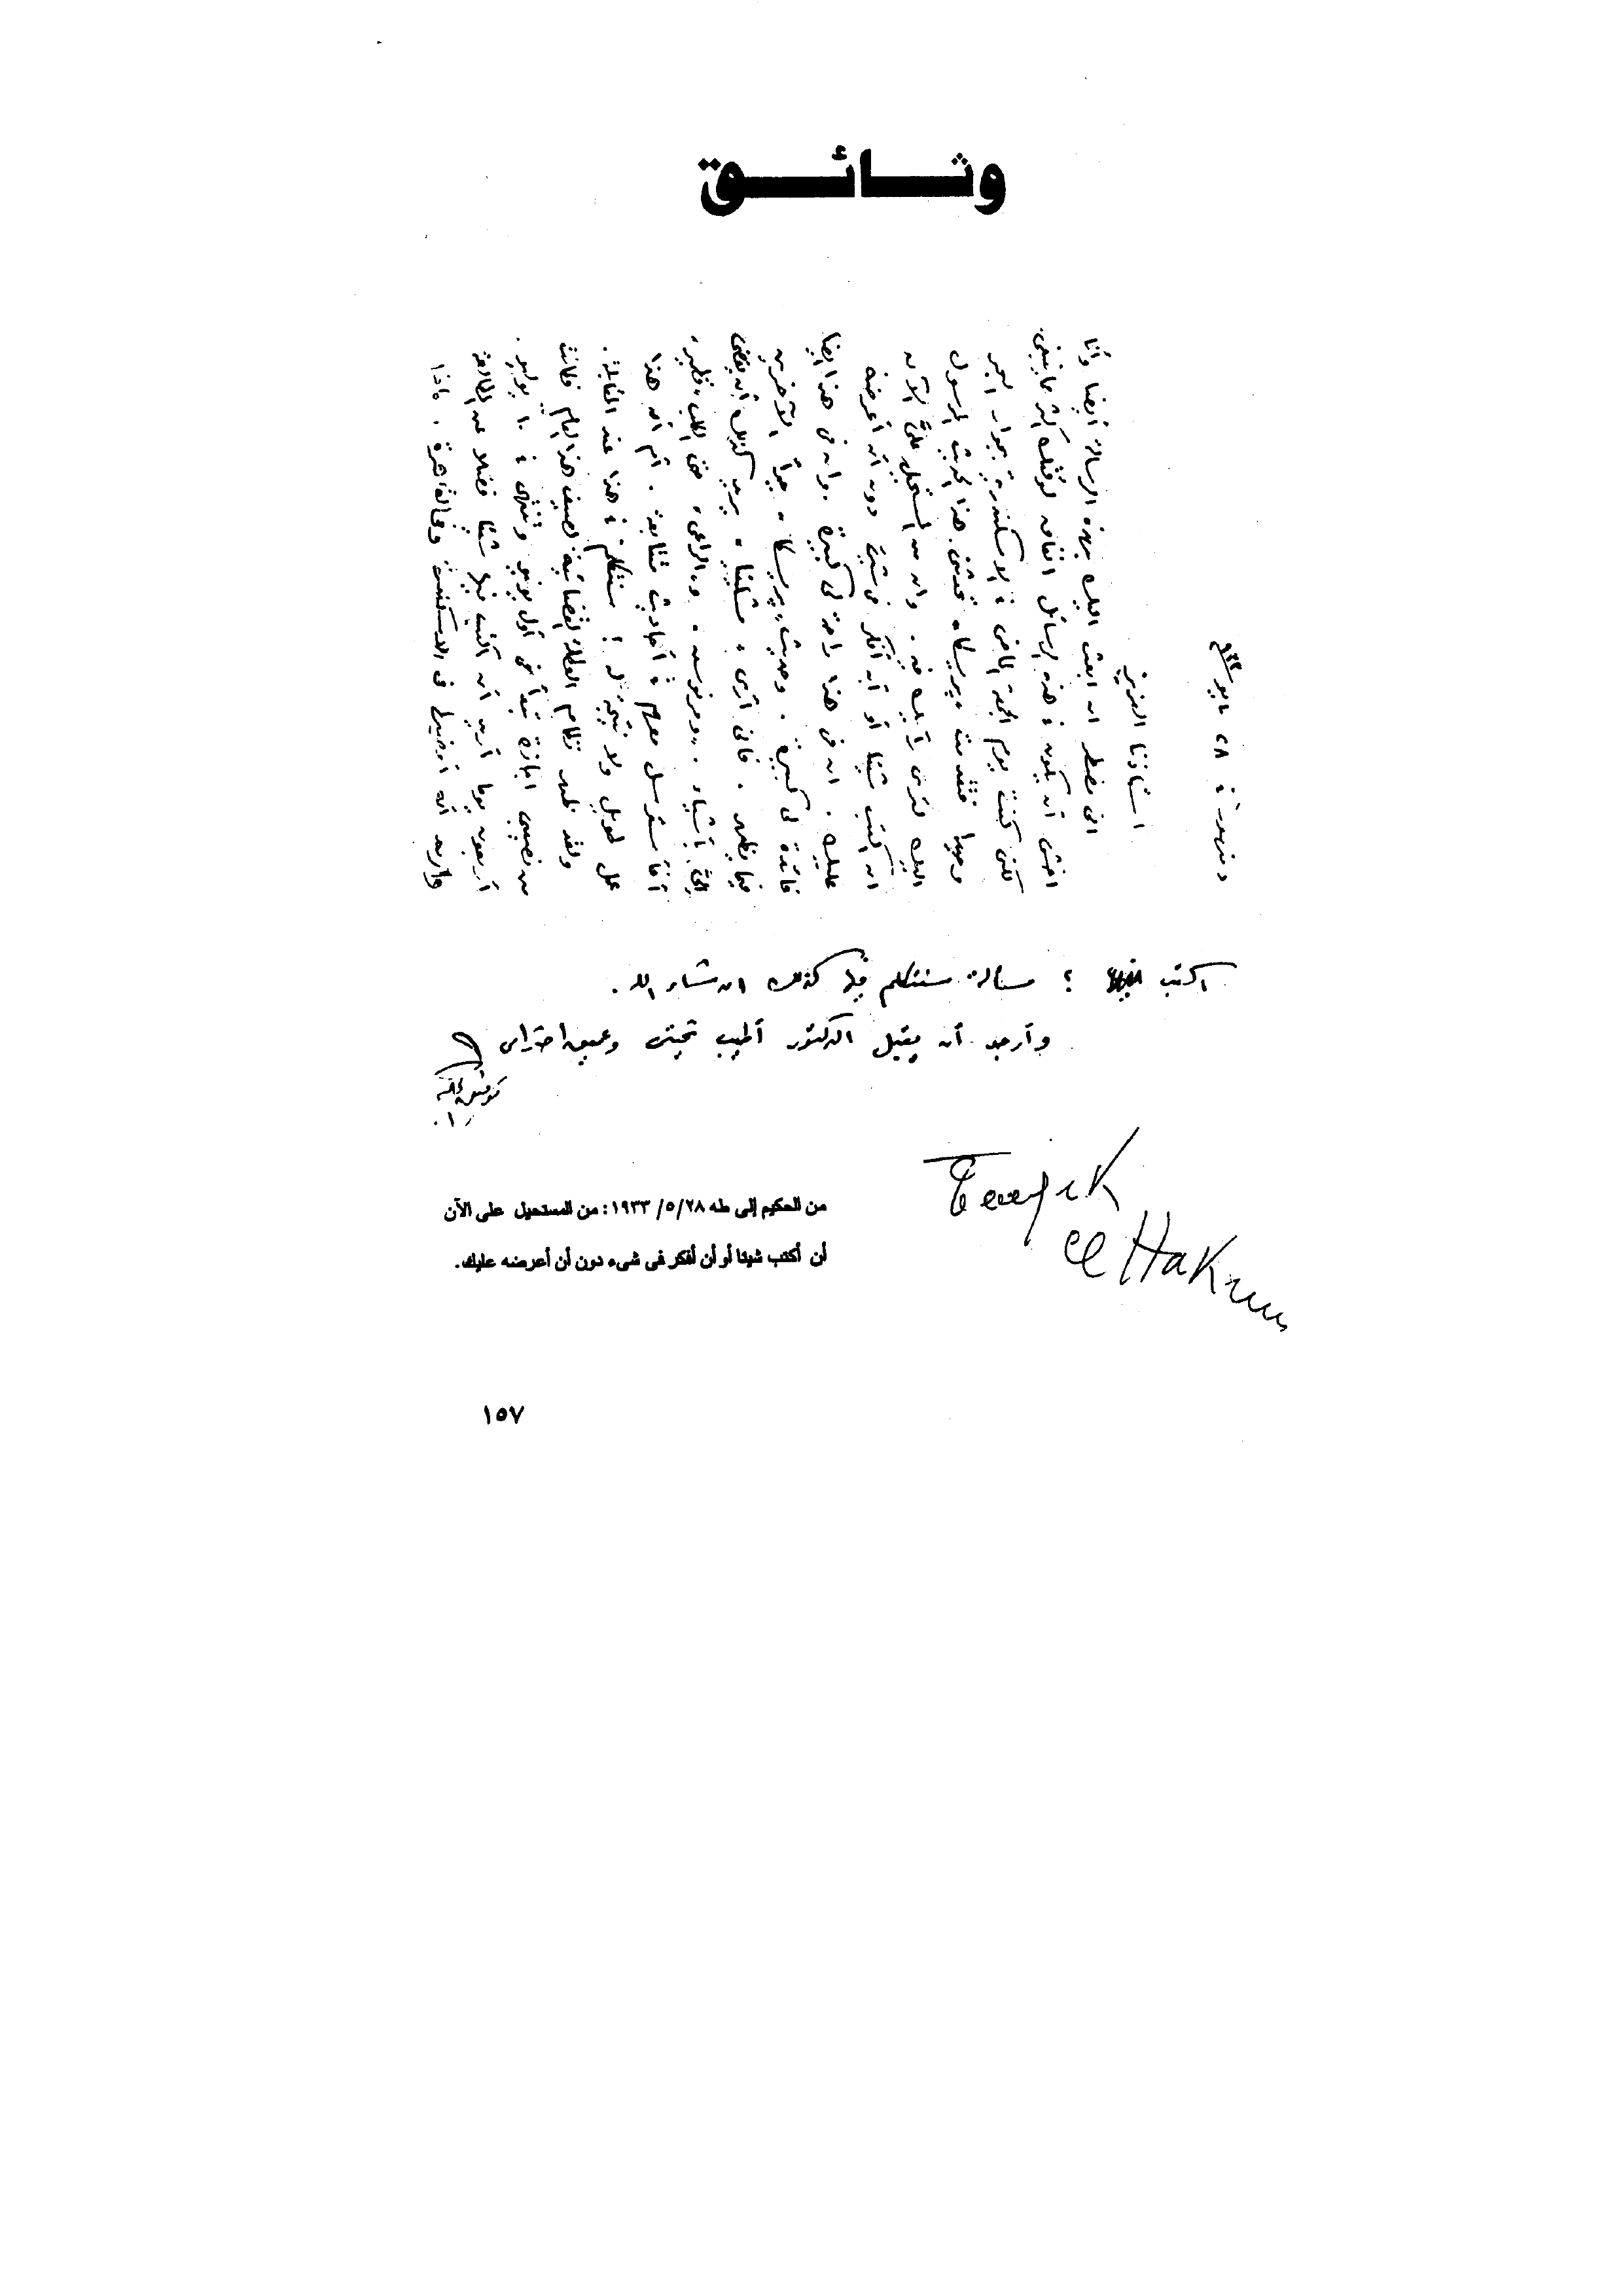 وثائق
دمنهور في ٢٨ مايو سنة ٩٣٣
استاذنا العزيز
انى مضطر ان ابعث اليك بهذه الرسالة أيضا وأنا
اخشى أن يكون في هذه الرسائل انفاق لوقتك أكثر مما ينبغى.
لكنى كنت يوم الجمعة الماضى في الاسكندرية بجوار البحر
هذا الحديث المرسول
اليك لترى رأيك فيه. وانه من المستحيل علىّ الآن
ان اكتب شيئا أو أن أفكر فى شىء دون أن أعرضه
عليك. ان فى هذا راحة لى كبيرة. وان فى هذا أيضا
فائدة لى كبيرة. وحديث
فيما يظهر. فانى أرى
أشياء.
أحاديث متتابعة. ثم ان هذا
عمل طويل ولا نتيجة له! سنتكلم في هذا عند المقابلة.
ولقد ظهر نظام العطلة القضائية لصيف هذا العام فكانت
من نصيبى اجازة تبدأ فى أول يونيو وتنتهى في ١٠ يوليو.
أربعون يوما أريد أن اكتب فيها شيئا فضلا عن المطالعة
وأريد أن أوفيها فى الاسكندرية وفى القاهرة. ماذا
اكتب ؟ مسألة سنتكلم فيها كذلك ان شاء الله.
وأرجو أن يقبل الدكتور أطيب تحيتى وعميق احترامى
توفيق الحكيم
Tewfik
el Hakim
من الحكيم إلى طه ٢٨/٥/١٩٣٣: من المستحيل على الآن
أن أكتب شيئا أو أن أفكر فى شىء دون أن أعرضه عليك.
١٥٧